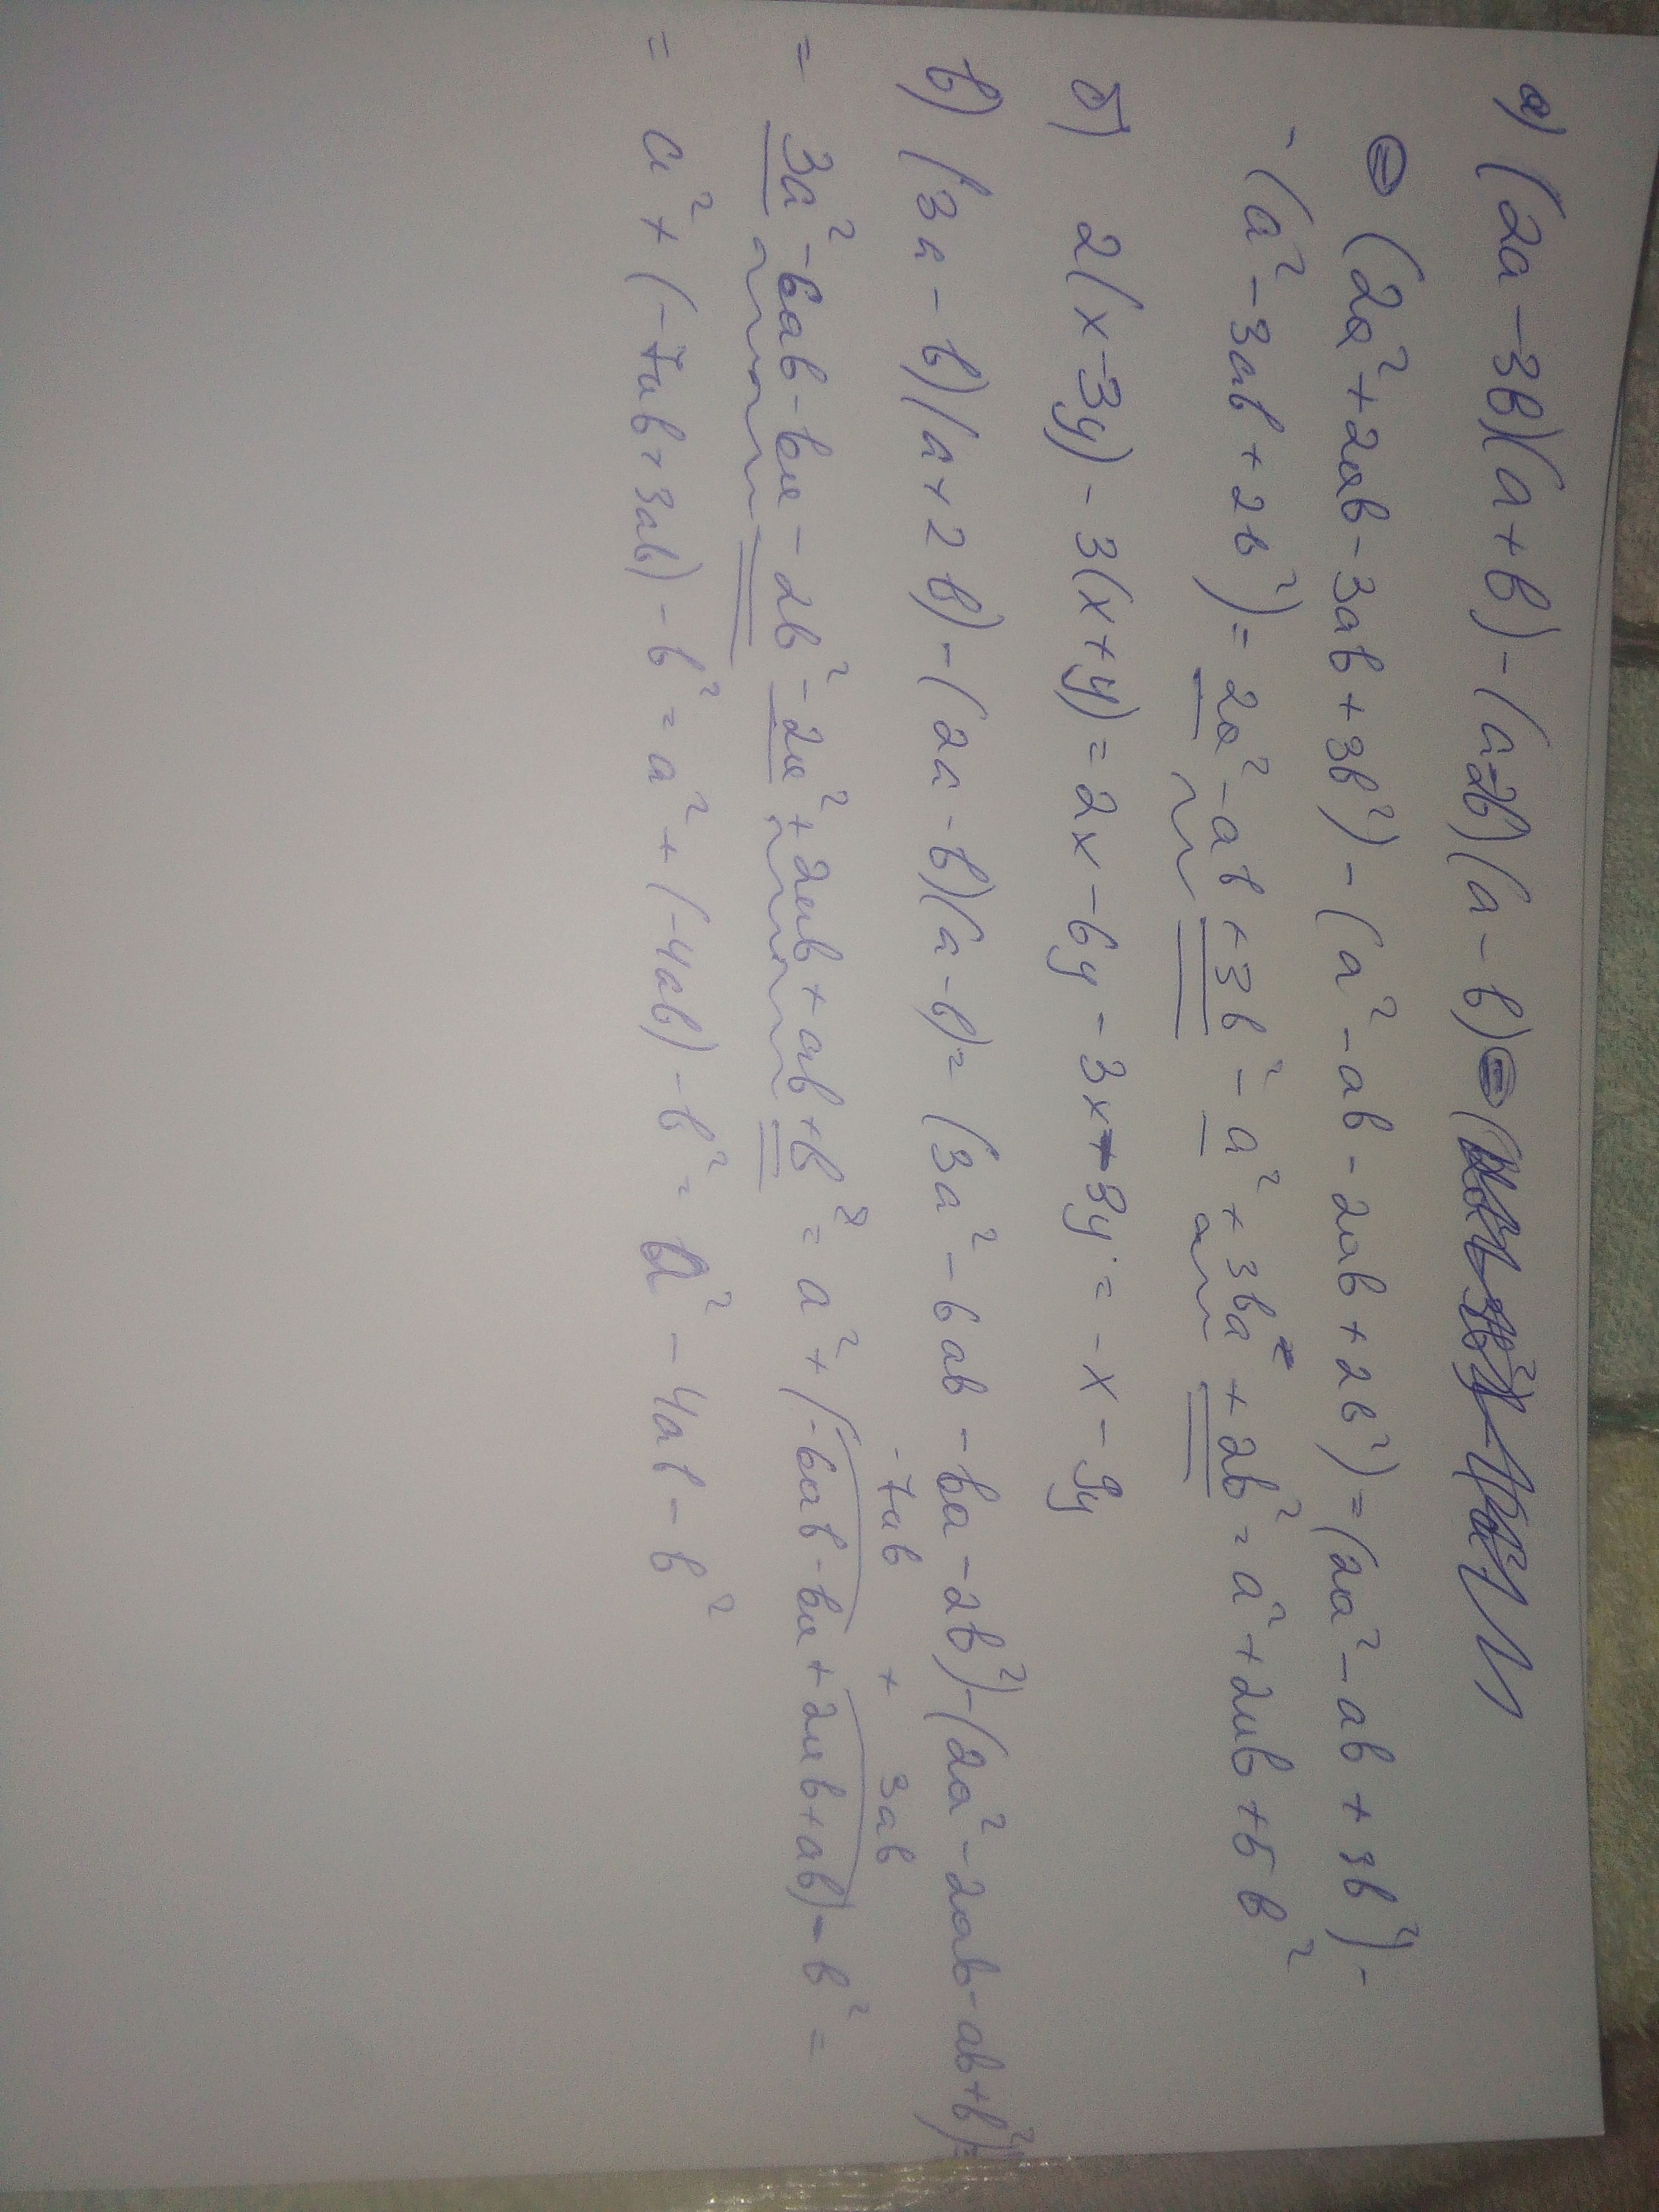 а) (2a-3b)(a+b)-(a-2b)(a-b)=(
= (2a²+2ab-3ab+3b²)-(a²-ab-2ab+2b²)=(2a²-ab+3b²)-
-(a²-3ab+2b²)=2a²-ab+3b²-a²+3ba+2b²=a²+2ab+5b²
б) 2(x-3y)-3(x+y)=2x-6y-3x-3y=-x-9y
в) (3a-b)(a+2b)-(2a-b)(a-b)=(3a²-6ab-ba-2b²)-(2a²-2ab-ab+b²)=
-7ab + 3ab
=3a²-6ab-ba-2b²-2a²+2ab+ab+b²=a²+(-6ab-ba+2ab+ab)-b²=
=a²+(-7ab+3ab)-b²=a²+(-4ab)-b²=a²-4ab-b²